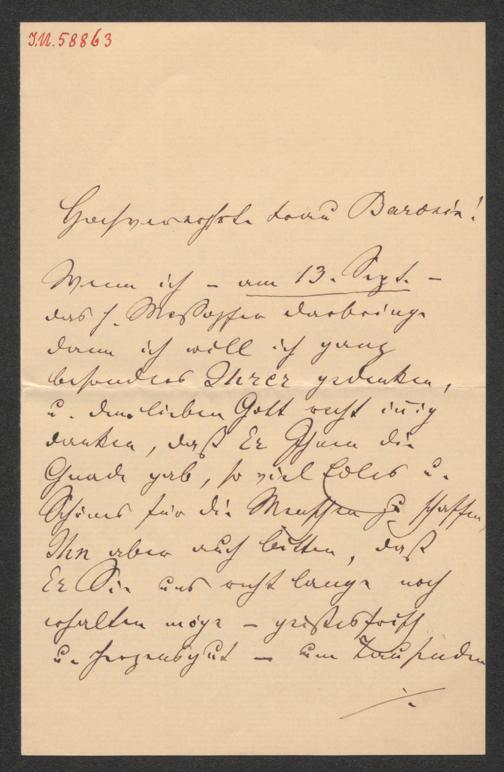 I.N. 58863
Hochverehrte Frau Baronin!
Wenn ich – am 13. Sept. –
das h. Meßopfer darbringe
dann ich will ich ganz
besonders Ihrer gedenken,
u. dem lieben Gott recht innig
danken, daß Er Ihnen die
Gnade gab, so viel Edles u.
Schönes für die Menschen zu schaffen,
Ihn aber auch bitten, daß
Er Sie uns recht lange noch
erhalten möge – geistesfrisch
u. herzensgut – um Tausenden
./.